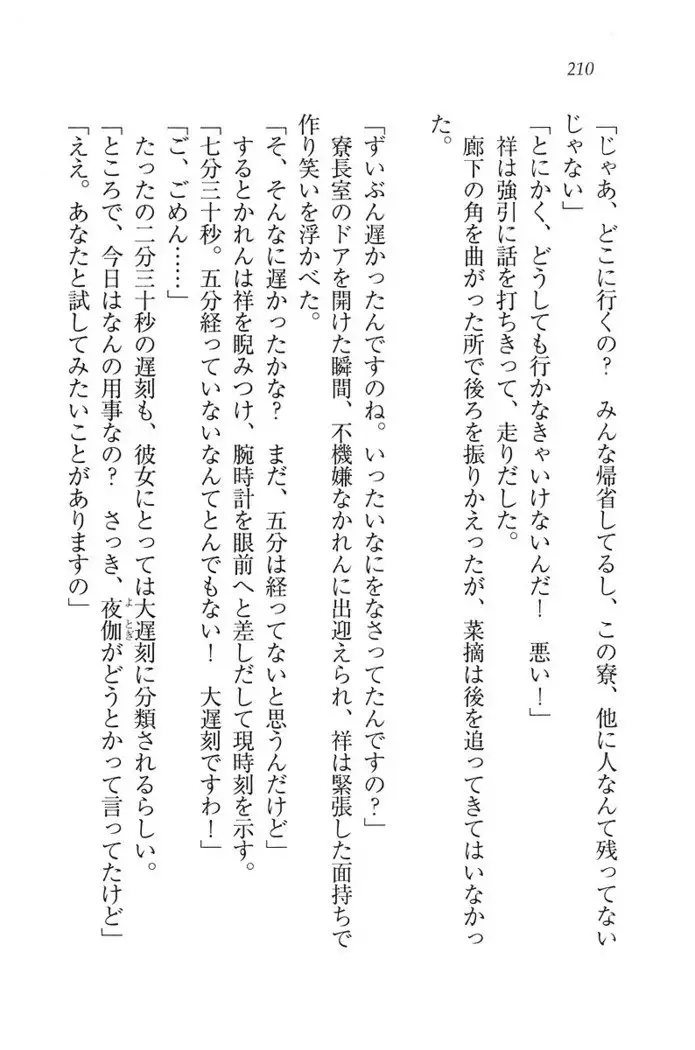 210
「じゃあ、どこに行くの？　みんな帰省してるし、この寮、他に人なんて残ってない
じゃない」
「とにかく、どうしても行かなきゃいけないんだ！　悪い！」
祥は強引に話を打ちきって、走りだした。
廊下の角を曲がった所で後ろを振りかえったが、菜摘は後を追ってきてはいなかっ
た。
「ずいぶん遅かったんですのね。いったいなにをなさってたんですの？」
寮長室のドアを開けた瞬間、不機嫌なかれんに出迎えられ、祥は緊張した面持ちで
作り笑いを浮かべた。
「そ、そんなに遅かったかな？　まだ、五分は経ってないと思うんだけど」
するとかれんは祥を睨みつけ、腕時計を眼前へと差しだして現時刻を示す。
「七分三十秒。五分経っていないなんてとんでもない！　大遅刻ですわ！」
「ご、ごめん……」
たったの二分三十秒の遅刻も、彼女にとっては大遅刻に分類されるらしい。
「ところで、今日はなんの用事なの？　さっき、夜伽がどうとかって言ってたけど」
よとぎ
「ええ。あなたと試してみたいことがありますの」